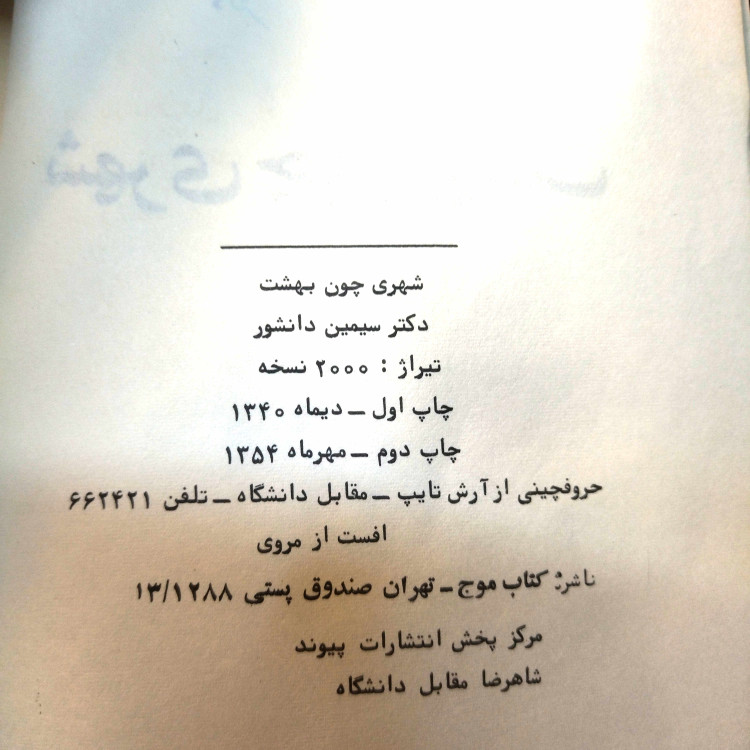 شهری چون بهشت
دکتر سیمین دانشور
تیراژ : ۲۰۰۰ نسخه
چاپ اول ــ دیماه ۱۳۴۰
چاپ دوم ــ مهرماه ۱۳۵۴
حروفچینی از آرش تایپ ــ مقابل دانشگاه ــ تلفن ۶۶۲۴۲۱
افست از مروی
ناشر: کتاب موج ــ تهران صندوق پستی ۱۳/۱۲۸۸
مرکز پخش انتشارات پیوند
شاهرضا مقابل دانشگاه